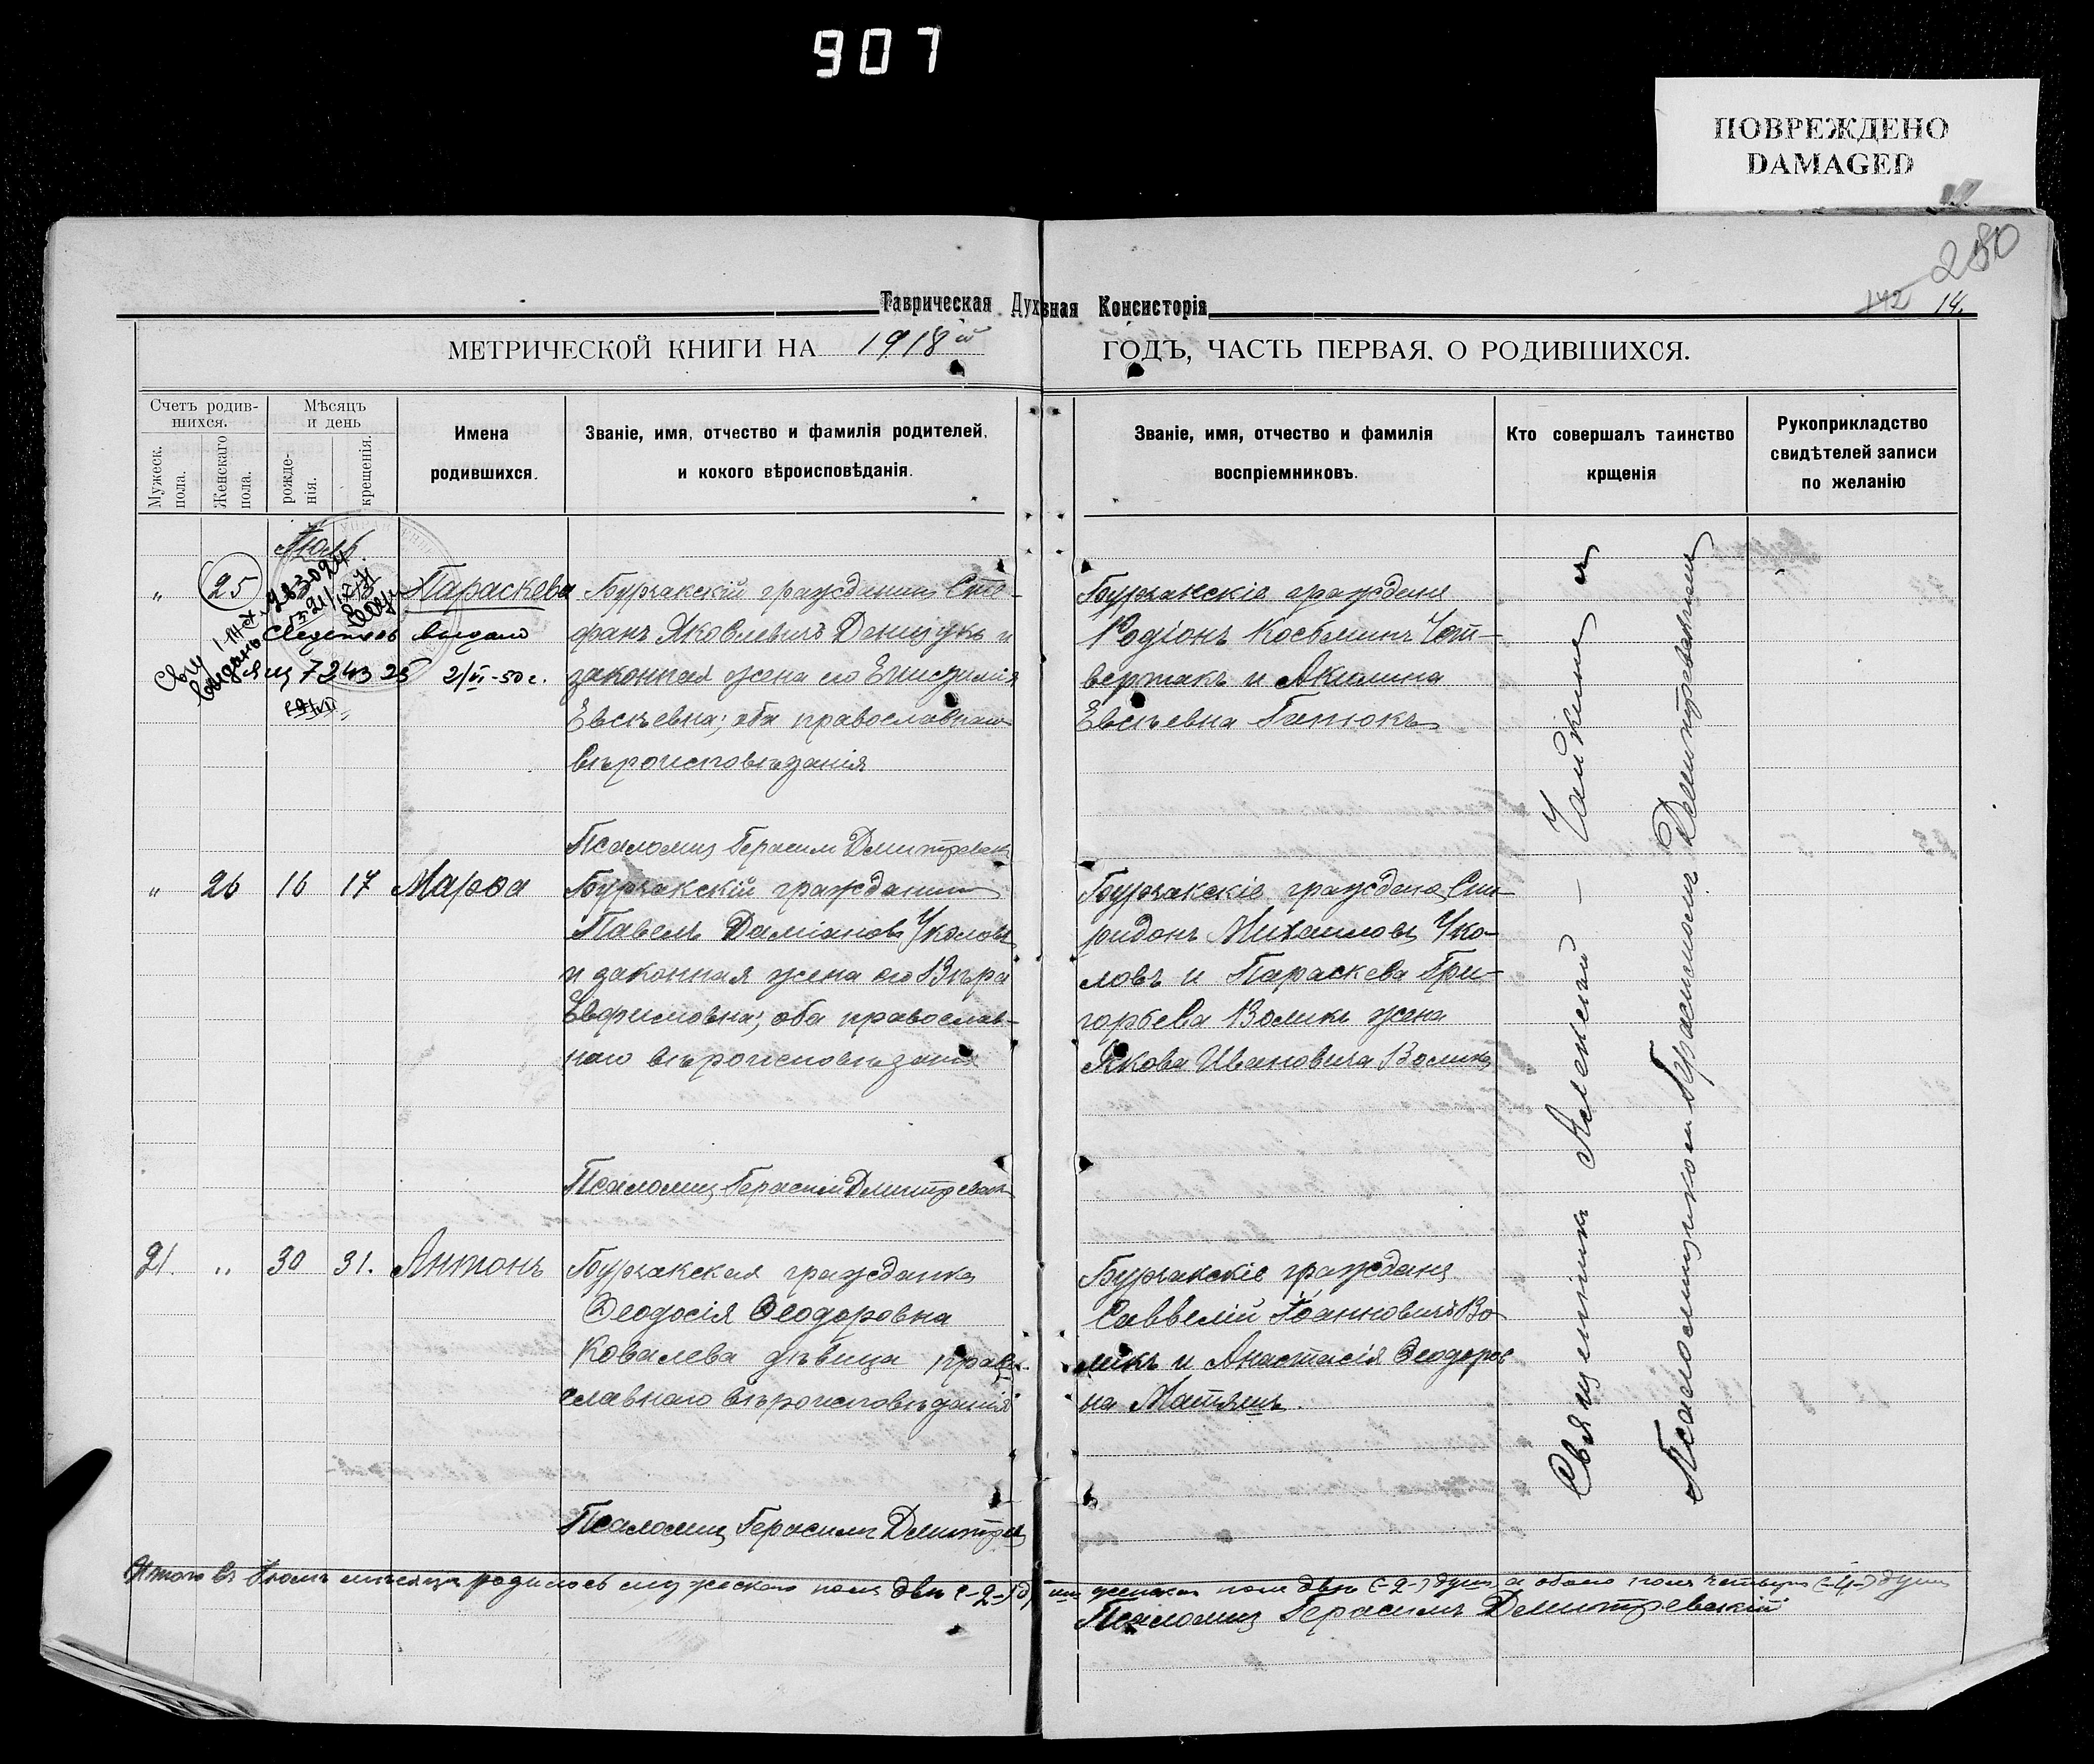 907
ПОВРЕЖДЕНО
DAMAGED
280
142 14.
Таврическая Духовная Консисторія
МЕТРИЧЕСКОЙ КНИГИ НА 1918й ГОДЪ, ЧАСТЬ ПЕРВАЯ, О РОДИВШИХСЯ.
Счетъ родив-
шихся.
Мужеск. пола.
Женскаго пола.
Мѣсяцъ
и день
рожде-
нія.
крещенія.
Имена
родившихся.
Званіе, имя, отчество и фамилія родителей,
и кокого вѣроисповѣданія.
Званіе, имя, отчество и фамилія
воспріемниковъ.
Кто совершалъ таинство
крщенія
Рукоприкладство
свидѣтелей записи
по желанію
„ 25
Параскева
выдано
яц 724325 2/VI-50 г.
Бурчакскій гражданинъ Сте-
фанъ Яковлевичъ Денисукъ и
законная жена его
Евсѣевна; оба православнаго
вѣроисповѣданія
Псаломщ Герасим Дмитревск
Бурчакскіе граждане
Родіонъ Косьминъ Чет-
вертакъ и Акилина
Евсѣевна Ганюкъ
„ 26 16 17 Марфа
Бурчакскій гражданинъ
Павелъ Даміановъ Уколовъ
и законная жена его Вѣра
оба православ-
наго вѣроисповѣданія
Псаломщ Герасим Дмитревск
Бурчакскіе граждане Спи-
ридонъ Михаиловъ Уко-
ловъ и Параскева Гри-
горьева Воликъ жена
Якова Ивановича Волика
21. „ 30 31. Антонъ
Бурчакская гражданка
Ѳеодосія Ѳеодоровна
Ковалева дѣвица право-
славнаго вѣроисповѣданія
Псаломщ Герасимъ Дмитрев
Бурчакскіе граждане
Саввелій Іоанновичъ Во
ликъ и Анастасія Ѳеодоров
на Матяшъ.
Священникъ Алексій Чайкинъ
Псаломщикъ Герасимъ Дмитревскій
Итого въ Іюлѣ мѣсяцѣ родилось мужескаго пола двѣ (-2-) д женскаго пола двѣ (-2-) душъ а обоего пола четыре (-4-) душъ
Псаломщ Герасимъ Дмитревскій